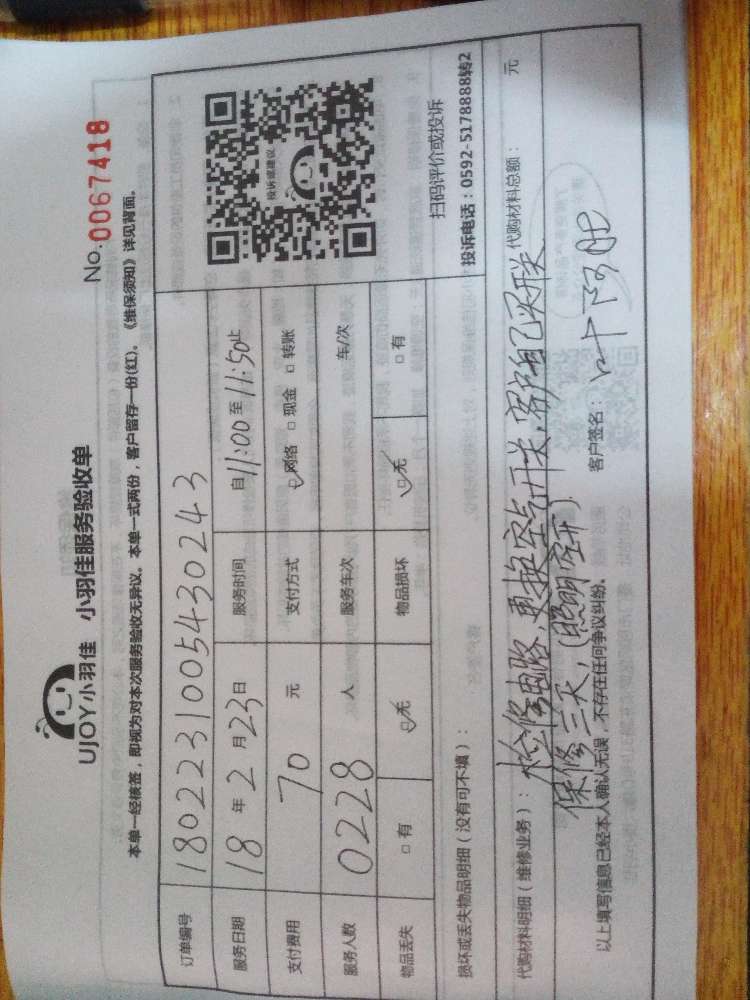 UJOY小羽佳 小羽佳服务验收单
No.0067418
本单一经核签，即视为对本次服务验收无异议。本单一式两份，客户留存一份(红)。《维保须知》详见背面。
订单编号 180223100543024 3
服务日期 18年2月23日 服务时间 自11:00至11:50止
支付费用 70元 支付方式 ☑网络 □现金 □转账
服务人数 0228人 服务车次 车/次
物品丢失 □有 ☑无 物品损坏 ☑无 □有
投诉或建议
扫码评价或投诉
投诉电话：0592-5178888转2
损坏或丢失物品明细（没有可不填）：
代购材料明细（维修业务）：检修电路、更换空气开关，客户自己买开关 代购材料总额： 元
保修三天，(照明空开)
以上填写信息已经本人确认无误，不存在任何争议纠纷。 客户签名：